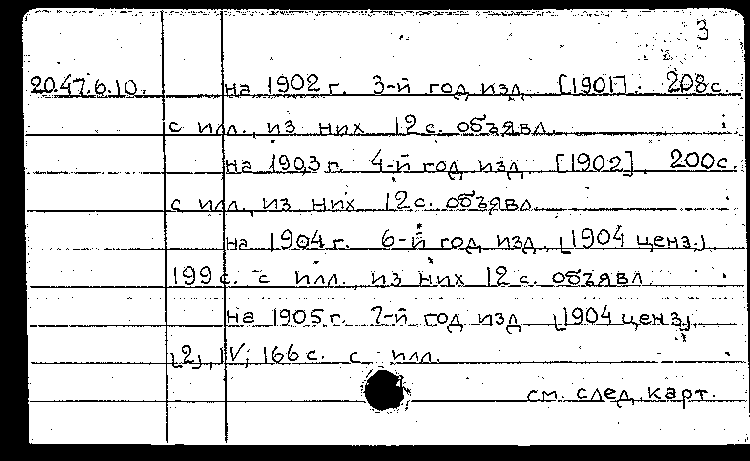 3
20.47.6.10. на 1902 г. 3-й год изд. [1901]. 208 с.
с илл., из них 12 с. объявл.
на 1903 г. 4-й год изд. [1902]. 200 с.
с илл., из них 12 с. объявл.
на 1904 г. 6-й год изд. [1904 ценз.]
199 с. с илл., из них 12 с. объявл.
на 1905 г. 7-й год изд. [1904 ценз].
[2], IV; 166 с. с илл.
см. след. карт.